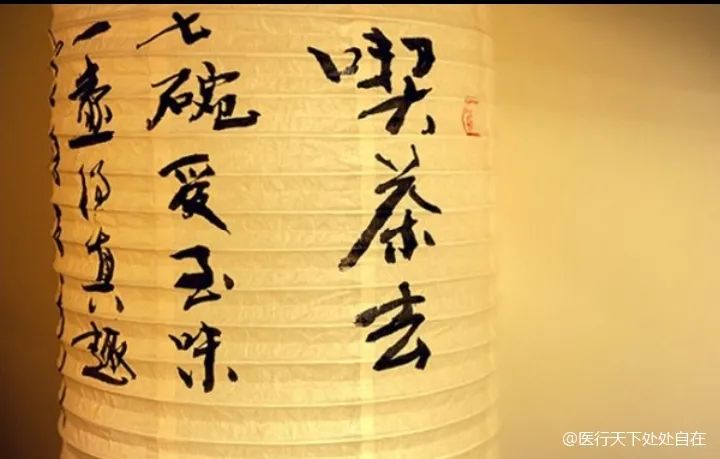 喫茶去
七碗爱至味
一壶得真趣
@医行天下处处自在